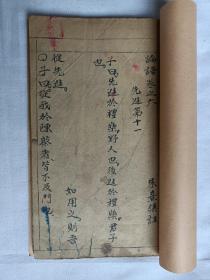 論語卷之六
朱熹集註
先進第十一
子曰先進於禮樂野人也後進於禮樂君子
也
如用之則吾
從先進
○子曰從我於陳蔡者皆不及門也